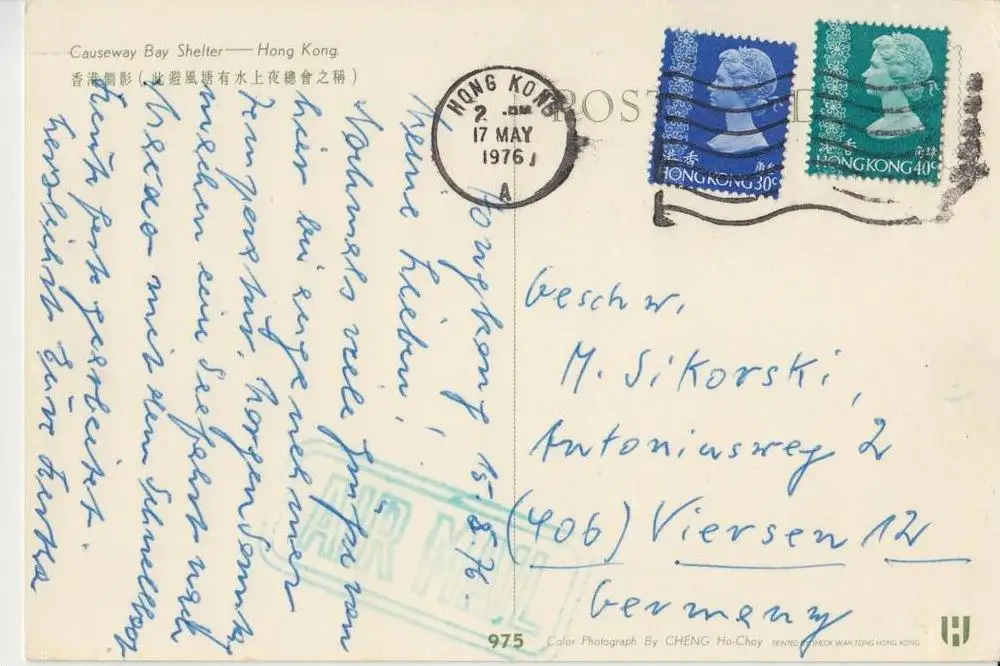 Causeway Bay Shelter — Hong Kong.
香港側影（此避風塘有水上夜總會之稱）
POST
HONG KONG
2 PM
17 MAY
1976
A
香港
HONG KONG 30c
香港
HONG KONG 40c
Hongkong 15.5.76.
Meine Lieben!
Nochmals viele Grüße von
hier bei angenehmer
Temperatur. Morgen Sonntag
machen eine Seefahrt nach
Macao mit dem Schnellboot
Heute fest gearbeitet.
Herzlichst Eure
AIR MAIL
Geschw.
M. Sikorski,
Antoniusweg 2
(406) Viersen 12
Germany
975
Color Photograph By CHENG Ho-Choy
PRINTED BY SHECK WAH TONG HONG KONG